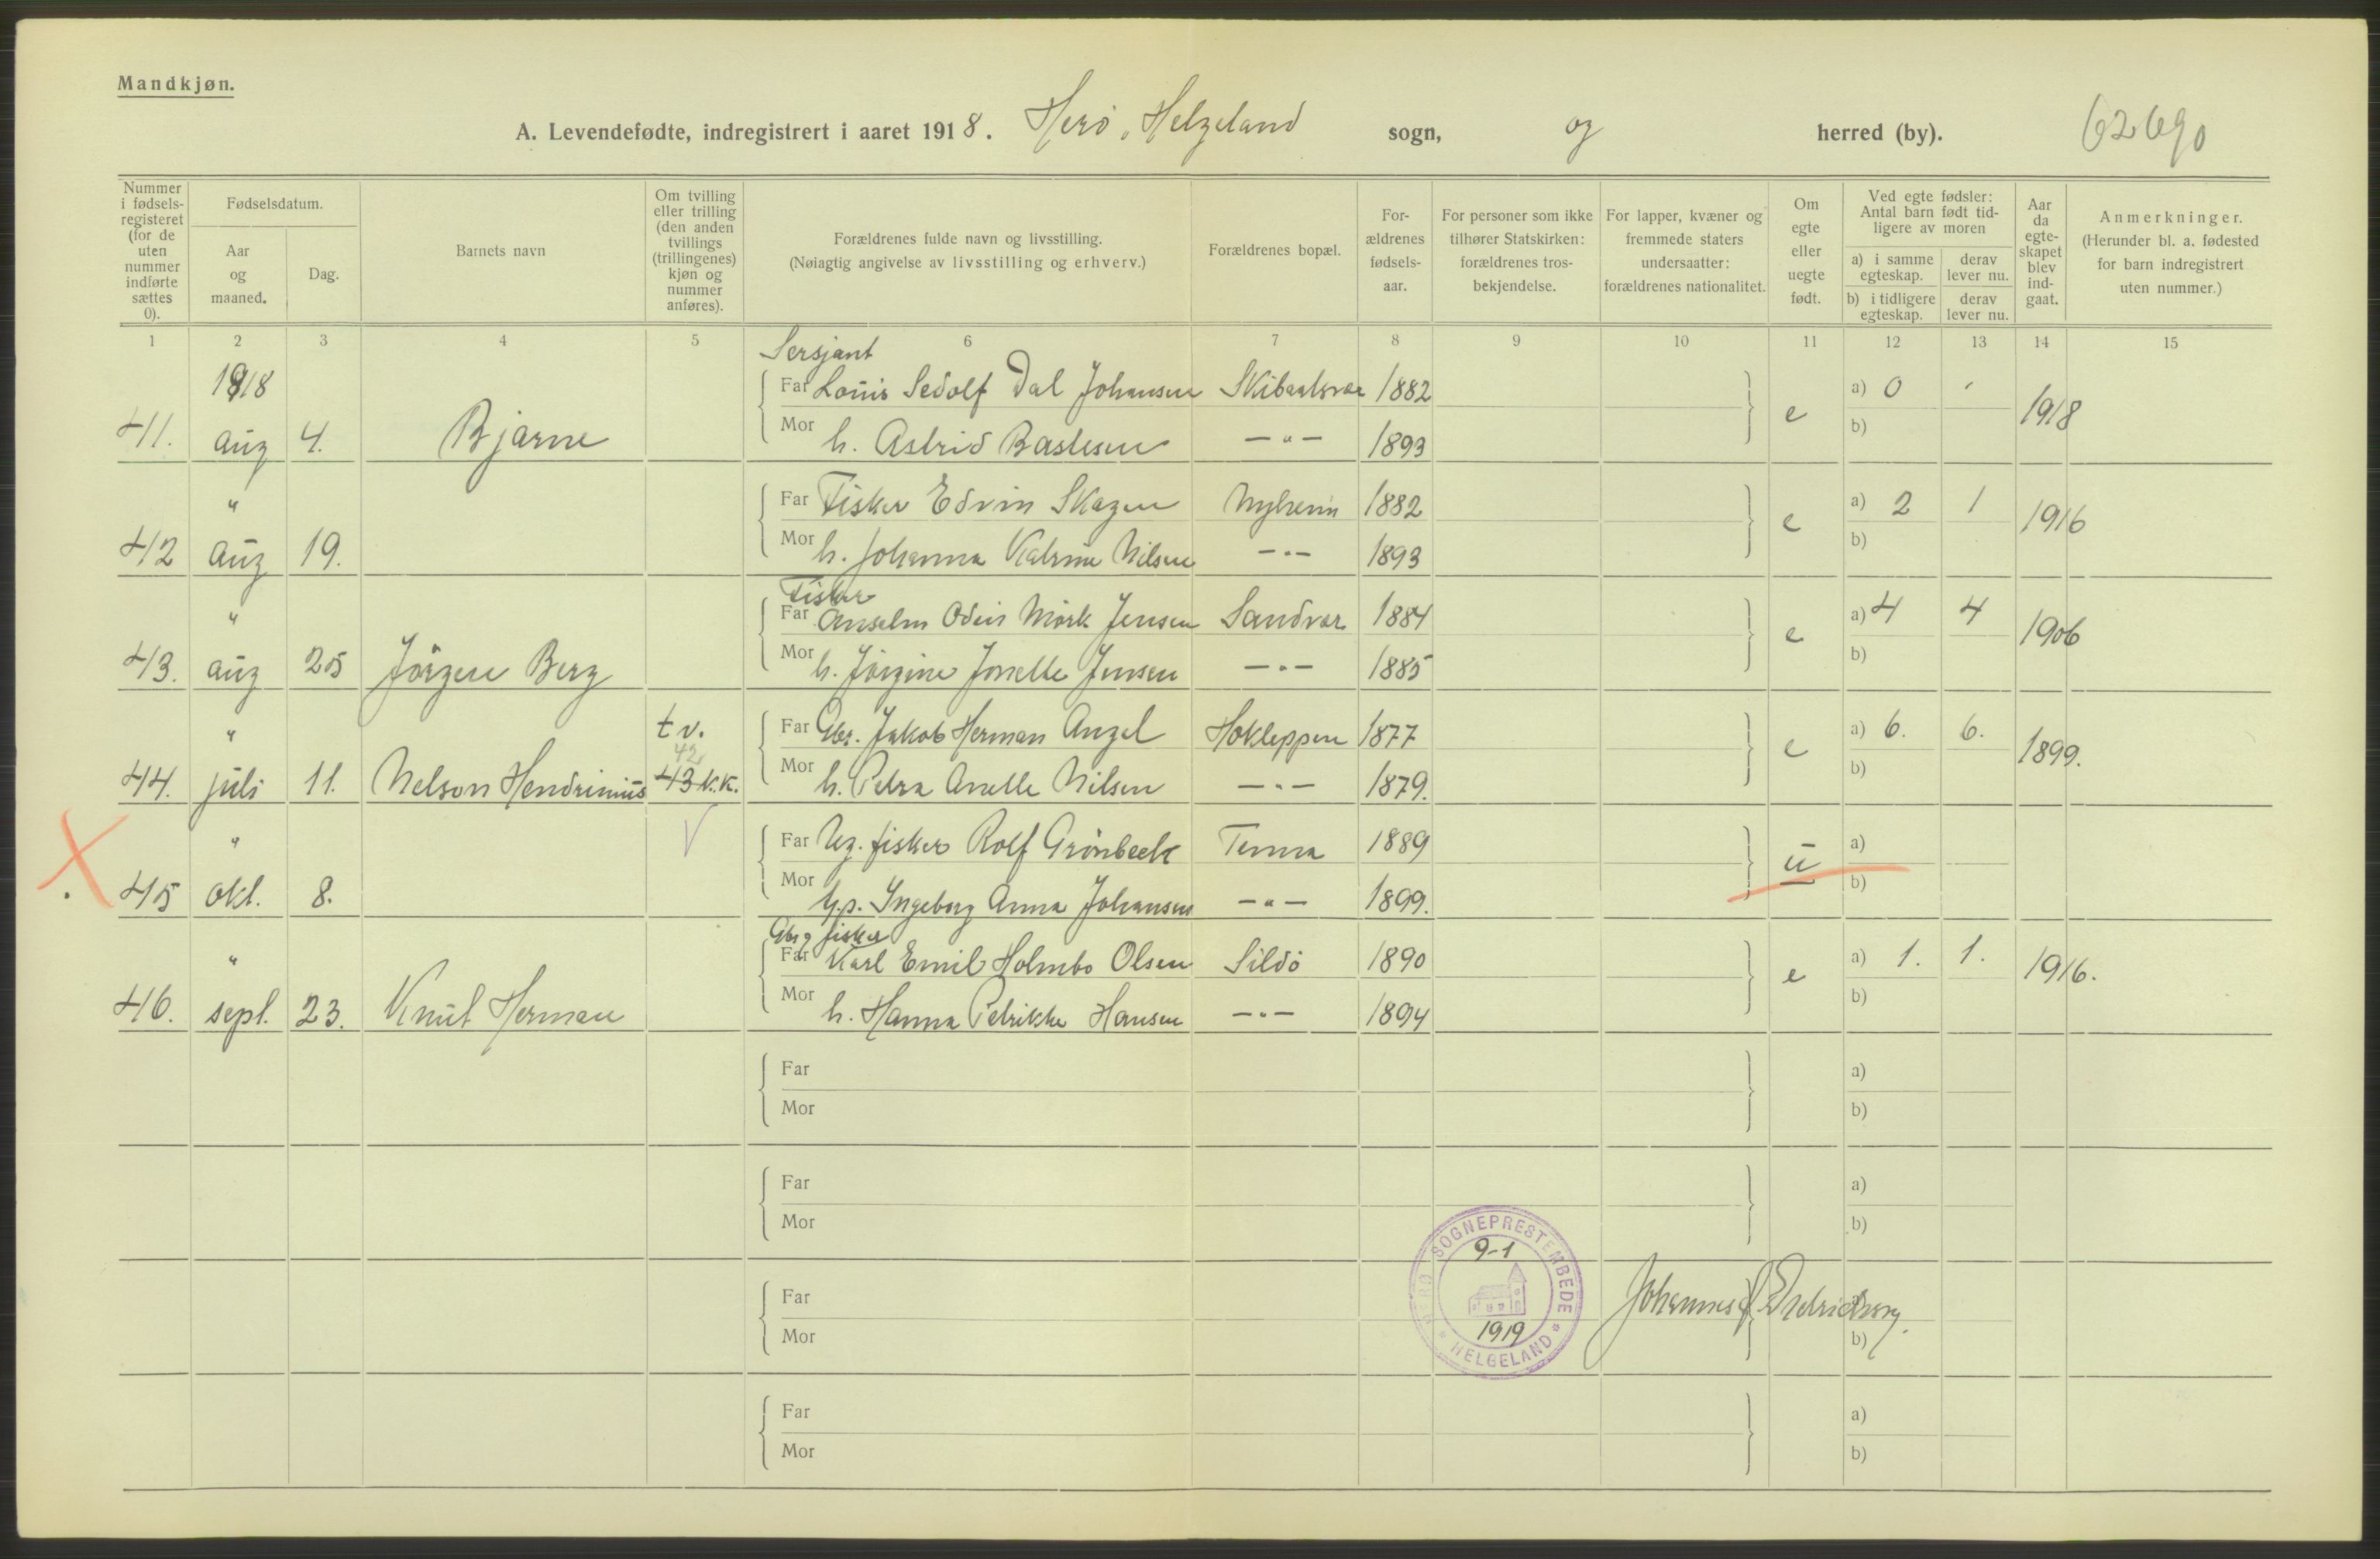 Mandkjøn.
A. Levendefødte, indregistrert i aaret 1918. Herö, Helgeland sogn, og herred (by). 62690
Nummer i fødsels-registeret (for de uten nummer indførte sættes 0).
Fødselsdatum.
Aar og maaned.
Dag.
Barnets navn
Om tvilling eller trilling (den anden tvillings (trillingenes) kjøn og nummer anføres).
Forældrenes fulde navn og livsstilling.
(Nøiagtig angivelse av livsstilling og erhverv.)
Forældrenes bopæl.
For-ældrenes fødsels-aar.
For personer som ikke tilhører Statskirken: forældrenes tros-bekjendelse.
For lapper, kvæner og fremmede staters undersaatter: forældrenes nationalitet.
Om egte eller uegte født.
Ved egte fødsler: Antal barn født tid-ligere av moren
a) i samme egteskap. derav lever nu.
b) i tidligere egteskap. derav lever nu.
Aar da egte-skapet blev ind-gaat.
Anmerkninger.
(Herunder bl. a. fødested for barn indregistrert uten nummer.)
1 2 3 4 5 6 7 8 9 10 11 12 13 14 15
Sersjant
1918 Far Louis Sedolf Dal Johansen 1882 a) 0
41. aug 4. Bjarne Mor h. Astrid Bastesen —"— 1893 e b) 1918
" Far Fisker Edvin Skagen 1882 a) 2 1
42 aug 19. Mor h. Johanna Katrine Nilsen —"— 1893 e b) 1916
Fisker
" Far Anselm Odin Mörk Jensen Sandvær 1884 a) 4 4
43. aug 25 Jörgen Berg Mor h. Jörgine Jonette Jensen —"— 1885 e b) 1906
" tv. Far Gbr. Jakob Herman Angel Hokleppen 1877 a) 6. 6.
42
44. juli 11. Nelson Hendrinius 43 k.k. Mor h. Petra Anette Nilsen —"— 1879. e b) 1899.
" Far Ug. fisker Rolf Grönbeck Tenna 1889 a)
45 okt. 8. Mor Ingeborg Anna Johansen —"— 1899. u b)
Gbr fisker
" Far Karl Emil Holmbo Olsen Sildö 1890 a) 1. 1.
46. sept. 23. Knut Herman Mor h. Hanna Petrikke Hansen —"— 1894 e b) 1916.
Far a)
Mor b)
Far a)
Mor b)
HERØ SOGNEPRESTEMBEDE * HELGELAND *
9-1
1919
Far Johannes
Mor b)
Far a)
Mor b)